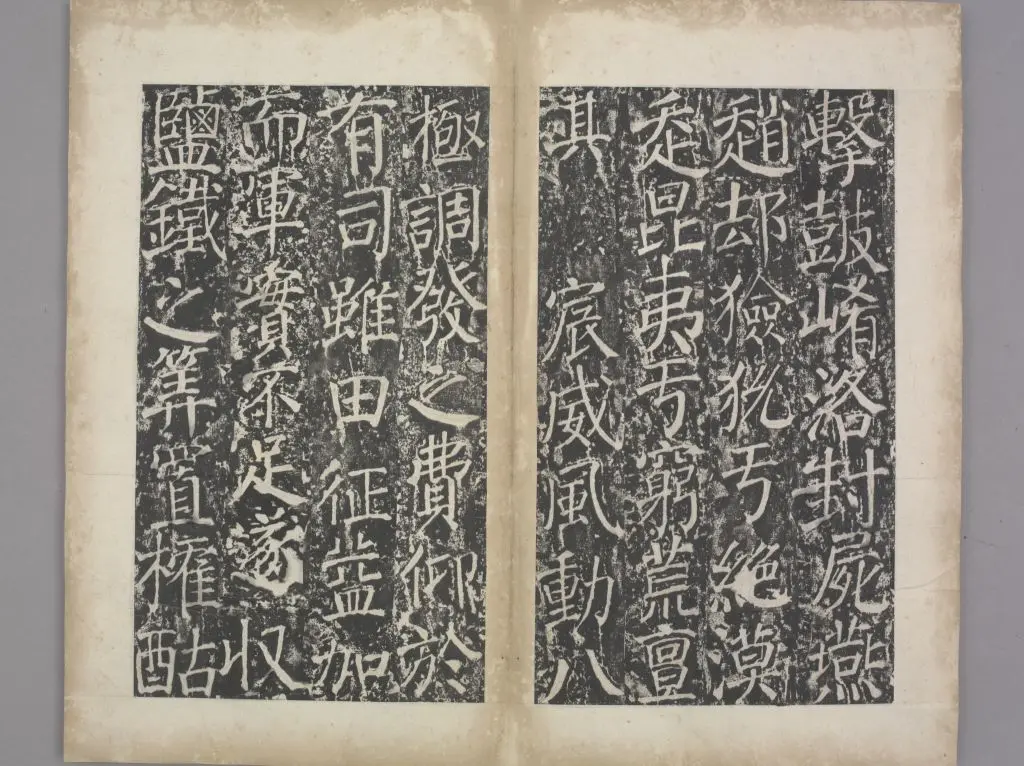 擊鼓崤洛封屍燕
趙却獫狁于絶漠
走昆夷于窮荒亶
其宸威風動八
極調發之費仰於
有司雖田征益加
而軍實不足遂収
鹽鐵之筭置榷酤